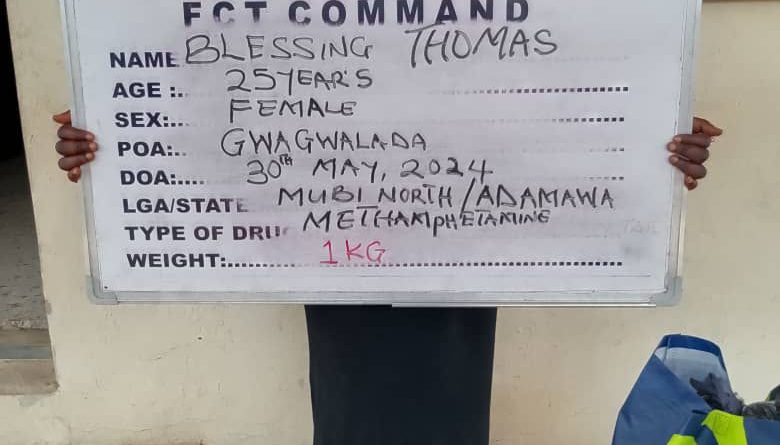 FCT COMMAND
NAME BLESSING THOMAS
AGE :.. 25 YEARS
SEX:.. FEMALE
POA:.. GWAGWALADA
DOA:.... 30TH MAY, 2024
LGA/STATE MUBI NORTH/ADAMAWA
TYPE OF DRU METHAMPHETAMINE
WEIGHT:.. 1KG